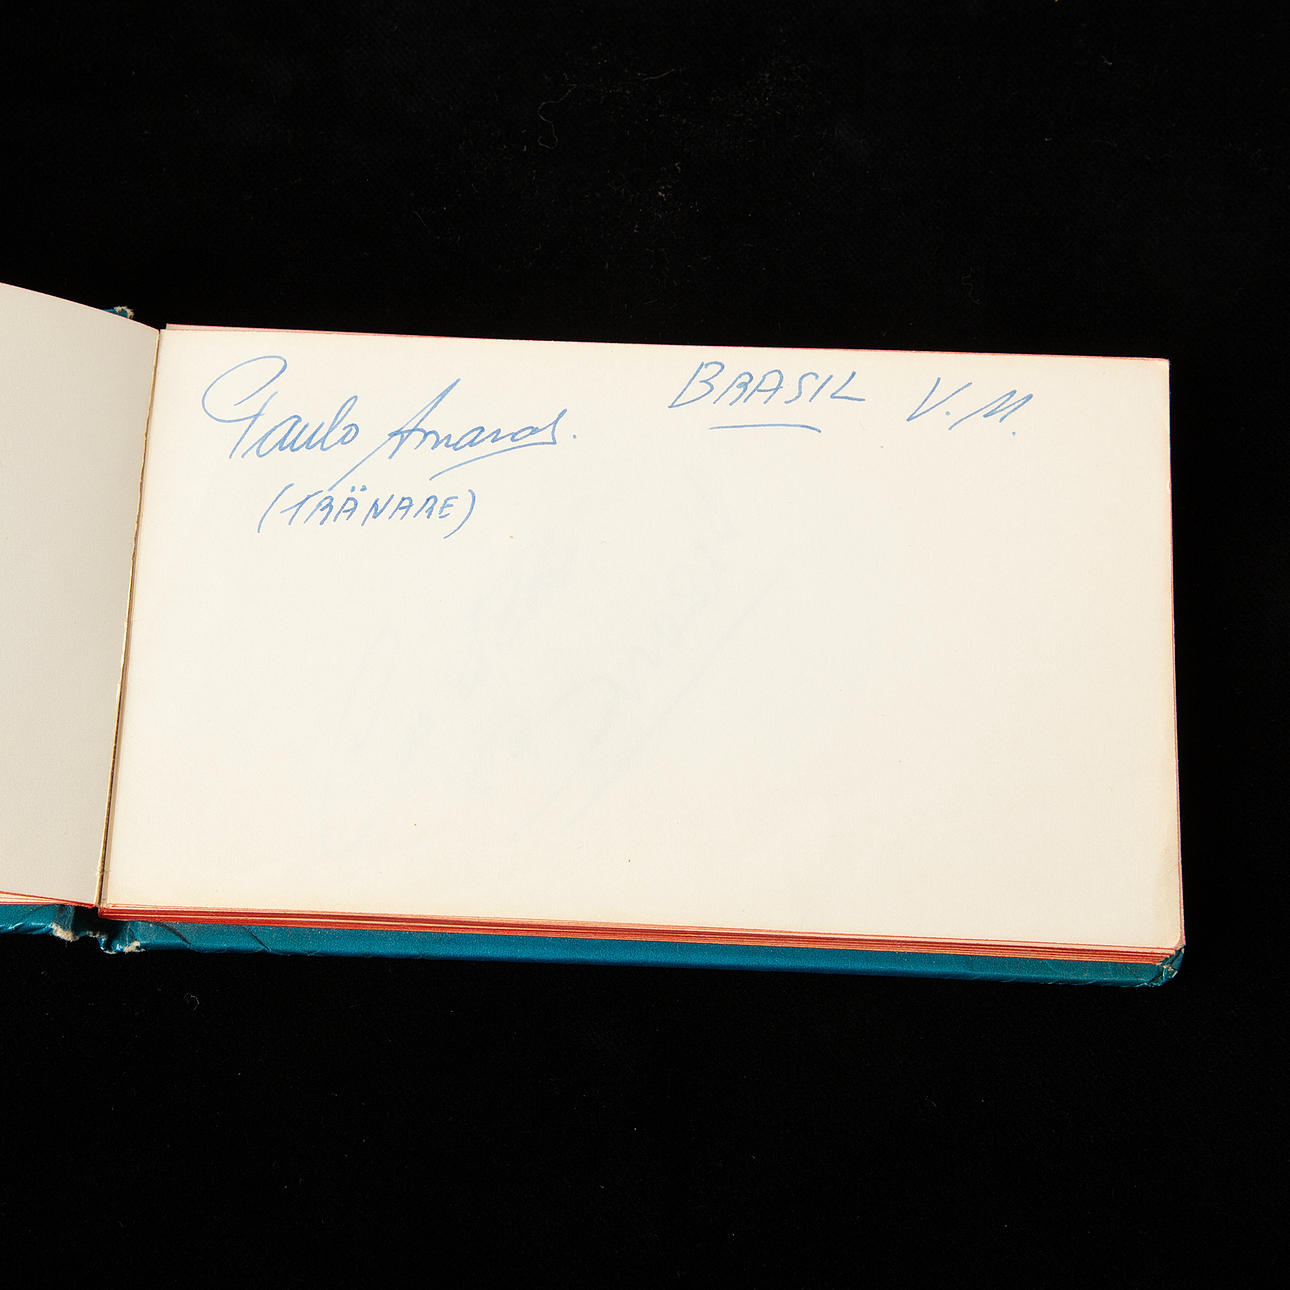 Paulo Amaral. BRASIL V.M.
(TRÄNARE)